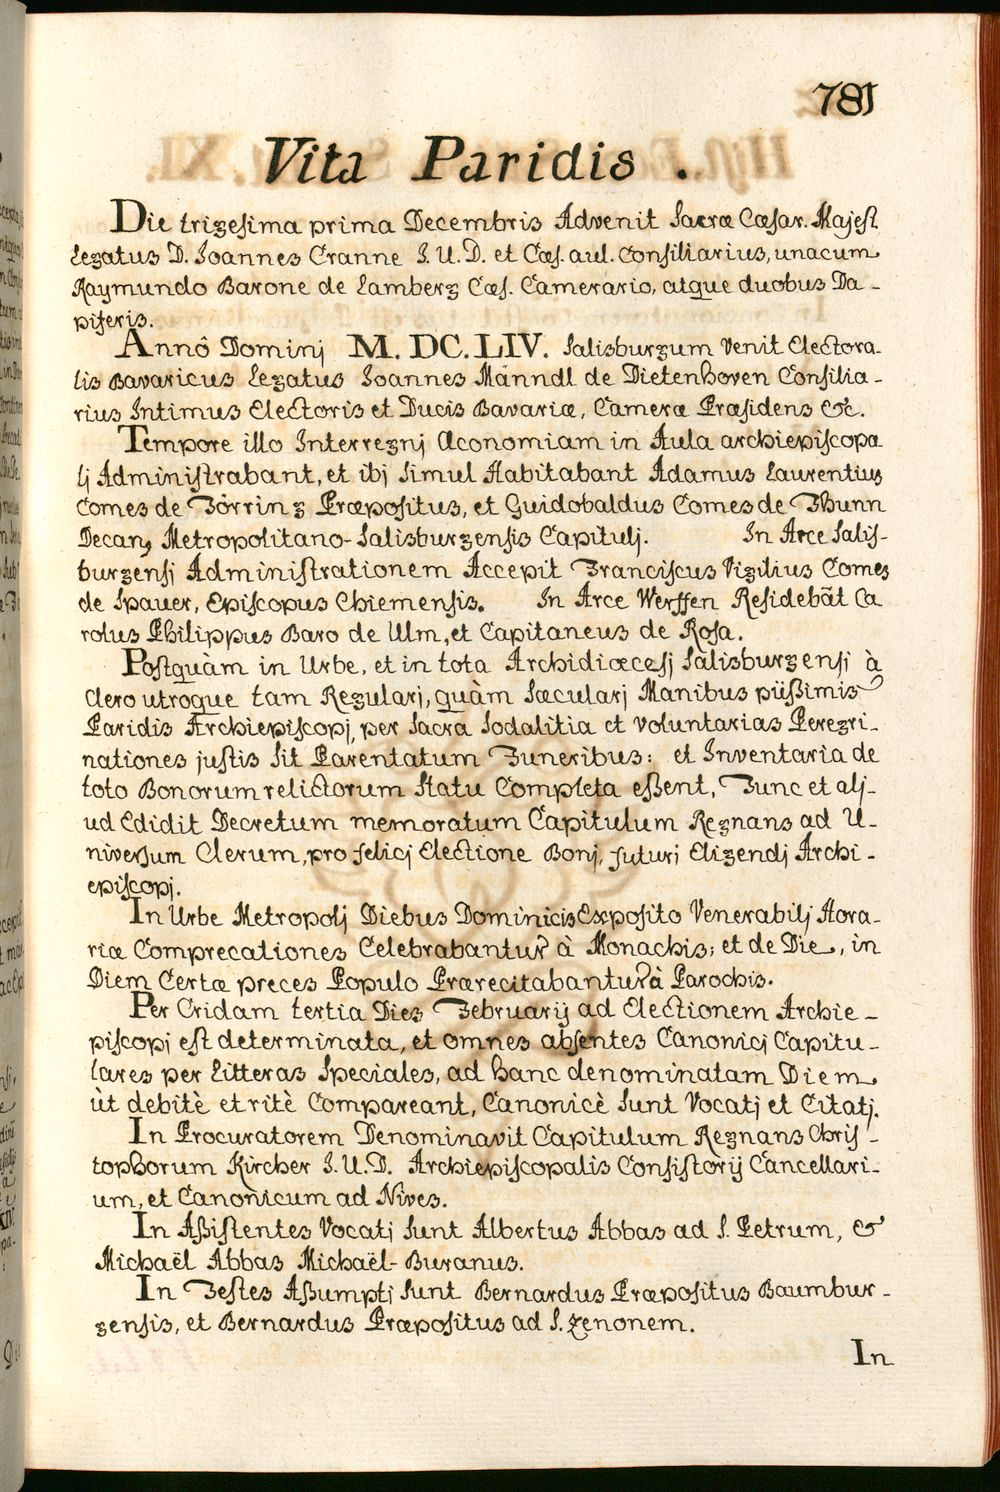 781
Vita Paridis.
Die trigesima prima Decembris Advenit Sacræ Cæsar. Majest
Legatus D. Joannes Cranne J. U. D. et Cæs. aul. Consiliarius, unacum
Raymundo Barone de Lamberg Cæs. Camerario, atque duobus Da-
piferis.
Annô Dominj M. DC. LIV. Salisburgum venit Electora-
lis Bavaricus Legatus Joannes Männdl de Dietenhoven Consilia-
rius Intimus Electoris et Ducis Bavariæ, Cameræ Præsidens &c.
Tempore illo Interregnj Œconomiam in Aula archiepiscopa
lj Administrabant, et ibj simul Habitabant Adamus Laurentius
Comes de Törring Præpositus, et Guidobaldus Comes de Thunn
Decan9 Metropolitano-Salisburgensis Capitulj. In Arce Salis-
burgensj Administrationem Accepit Franciscus Vigilius Comes
de Spauer, Episcopus Chiemensis. In Arce Werffen Residebãt Ca
rolus Philippus Baro de Ulm, et Capitaneus de Rosa.
Postquàm in Urbe, et in tota Archidiœcesj Salisburgensj à
Clero utroque tam Regularj, quàm Sæcularj Manibus piißimis
Paridis Archiepiscopj, per Sacra Sodalitia et voluntarias Peregri-
nationes justis sit Parentatum Funeribus: et Inventaria de
toto Bonorum relictorum Statu Completa eßent, Tunc et alj-
ud Edidit Decretum memoratum Capitulum Regnans ad U-
niversum Clerum, pro felicj Electione Bonj, futurj Eligendj Archi-
episcopj.
In Urbe Metropolj Diebus Dominicis Exposito Venerabilj Hora-
riæ Comprecationes Celebrabantur à Monachis; et de Die, in
Diem Certæ preces Populo Præcitabantur à Parochis.
Per Cridam tertia Dies Februarij ad Electionem Archie-
piscopj est determinata, et omnes absentes Canonicj Capitu-
lares per Litteras Speciales, ad hanc denominatam Diem
ùt debitè et ritè Compareant, Canonicè sunt Vocatj et Citatj.
In Procuratorem Denominavit Capitulum Regnans Chris-
tophorum Kircher J. U. D. Archiepiscopalis Consistorij Cancellari-
um, et Canonicum ad Nives.
In Aßistentes Vocatj sunt Albertus Abbas ad S. Petrum, &
Michaël Abbas Michaël-Buranus.
In Testes Aßumptj sunt Bernardus Præpositus Baumbur-
gensis, et Bernardus Præpositus ad S. Zenonem.
In